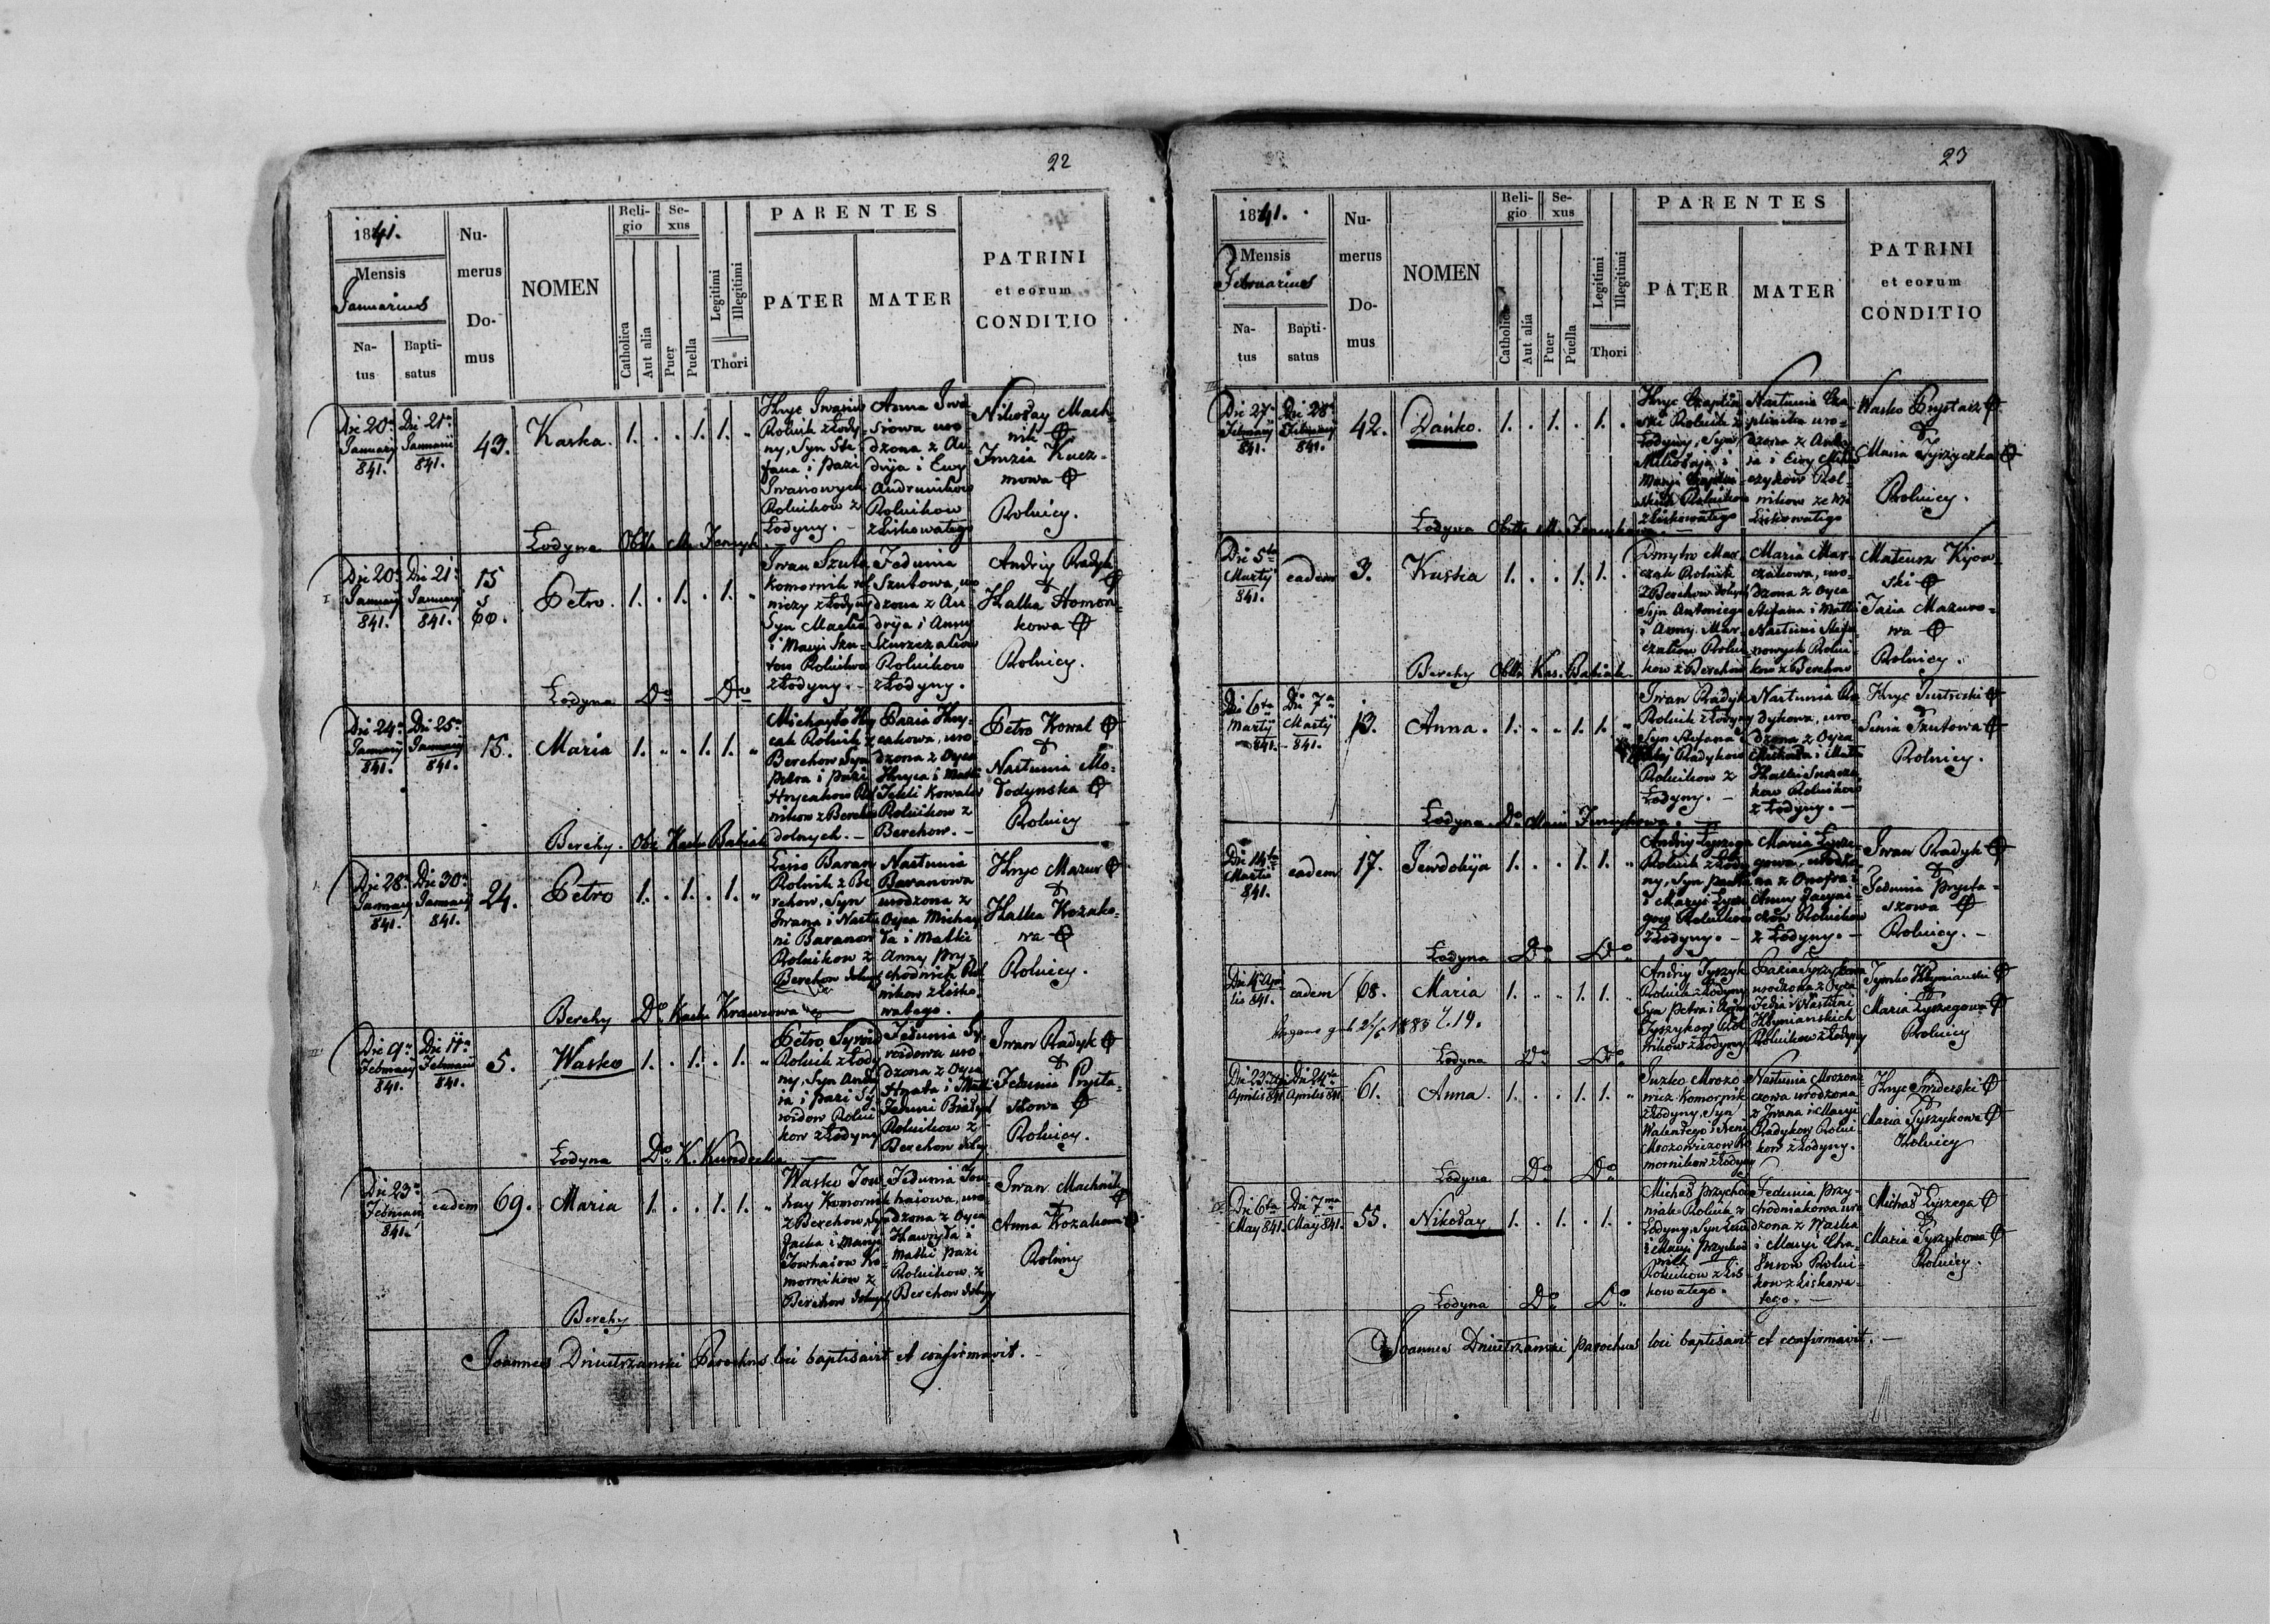 22
1841.
Mensis
Januarius
Na-
tus
Bapti-
satus
Nu-
merus
Do-
mus
NOMEN
Reli-
gio
Catholica
Aut alia
Se-
xus
Puer
Puella
Legitimi
Illegitimi
Thori
PARENTES
PATER
MATER
PATRINI
et eorum
CONDITIO
Die 20a
Januarij
841.
Die 21a
Januarii
841.
43.
Kaska.
1. . . 1. 1. "
Hryc Iwasiow
Rolnik z Łody
ny, Syn Ste
fana i Pazi
Iwasiowych
Rolnikow z
Łodyny. –
Anna Iwa
siowa uro
dzona z An
dryja i Ewy
Andrunikow
Rolnikow
z Liskowatego
Nikołay Mach-
nik
Jruzia Kucz-
mowa
Rolnicy.
Łodyna
Die 20a
Januarij
841.
Die 21a
Januarij
841.
15
60.
Petro.
1. . 1. . 1. "
Iwan Szuto
Komornik rol
niczy z Łodyny
Syn Macka
i Maryi Szu-
tow Rolnikow
z Łodyny. –
Fedunia
Szutowa, uro
dzona z An
dryja i Anny
Rolnikow
z Łodyny.
Andriy Radyk
Hałka Homon-
kowa
Rolnicy.
Łodyna Do Do
Die 24a
Januarij
841.
Die 25a
Januarij
841.
15.
Maria
1. " " 1. 1. "
Michayło Hry
cak Rolnik z
Berehow Syn
Petra i Pazi
Hrycakow Rol
nikow z Berehow
dolnych. –
Pazia Hry-
cakowa, uro
dzona z Oyca
Hryca i Matki
Tekli Kowalow
Rolnikow z
Berehow. –
Petro Kowal
Nastunia Mo-
łodynska
Rolnicy
Berehy.
Die 28a
Januarij
841.
Die 30a
Januarij
841.
24.
Petro
1. . 1. . 1. "
Baran
Rolnik z Be
rehow, Syn
Iwana i Nastu
ni Baranow
Rolnikow z
Berehow dolnych
Nastunia
Baranowa
urodzona z
Oyca Michay
ła i Matki
Anny Pry-
chodnich Rol
nikow z Lisko
watego.
Hryc Mazur
Hałka Kozako-
wa
Rolnicy.
Berehy Do Krawcowa
Die 9a
Februarij
841.
Die 11a
Februarii
841.
5.
Wasko
1. . 1. . 1. "
Petro Syroid
Rolnik z Łody
ny, Syn Andr
ia i Pazi Sy
roidow Rolni
kow z Łodyny
Fedunia Sy
roidowa uro
dzona z Oyca
Hnata i Matki
Feduni
Rolnikow z
Berehow dolny
Iwan Radyk
Fedunia Prysta-
szowa
Rolnicy.
Łodyna Do
Die 23a
Februarij
841.
eadem
69.
Maria
1. . . 1. 1. "
Wasko Jow
hay Komornik
z Berehow, Syn
Jacka i Maryi
Jowhaiow Ko-
mornikow z
Berehow dolnych
Fedunia Jow
haiowa, uro
dzona z Oyca
Hawryła i
Matki Pazi
Rolnikow z
Berehow dolny
Iwan Machnik
Anna Kozakowa
Rolnicy
Berehy
Joannes Dmietrzanski Parochus loci baptisavit et confirmavit. –
23
1841.
Mensis
Februarius
Na-
tus
Bapti-
satus
Nu-
merus
Do-
mus
NOMEN
Reli-
gio
Catholica
Aut alia
Se-
xus
Puer
Puella
Legitimi
Illegitimi
Thori
PARENTES
PATER
MATER
PATRINI
et eorum
CONDITIO
Die 27a
Februarij
841.
Die 28a
Februarij
841.
42.
Dańko.
1. . 1. . 1. .
Hryc
Rolnik z
Łodyny, Syn
Mikołaja i
Maryi
Rolnikow
z Liskowatego
Nastunia
uro-
dzona z Andr
ia i Ewy
Rol-
nikow ze wsi
Liskowatego
Wasko Prystasz
Maria Tyrzyczka
Rolnicy.
Łodyna
Die 5ta
Martij
841.
eadem
3.
Kaska
1. . . 1. 1. .
Dmytro Mar
czak Rolnik
z Berehow dolnych
Syn Antoniego
i Anny Mar-
czakow Rolni
kow z Berehow
Maria Mar-
czakowa, uro-
dzona z Oyca
Stefana i Matki
Nastuni
Rolni-
kow z Berehow
Mateusz Kijow-
ski
Jasia Mazuro-
wa
Rolnicy.
Berehy
Die 6ta
Martij
841.
Die 7a
Martij
841.
13.
Anna.
1. . . 1. 1. "
Iwan Radyk
Rolnik z Łodyny
Syn Stefana i
Radykow
Rolnikow z
Łodyny. –
Nastunia Ra
dykowa, uro-
dzona z Oyca
Michała i Matki
Hałki
Rolnikow
z Łodyny. –
Hryc
Senia Szutowa
Rolnicy.
Łodyna Do
Die 14ta
Martii
841.
eadem
17.
Jewdokija
1. . . 1. 1. "
Andrij Łyszega
Rolnik z Łody
ny, Syn Pawła
i Maryi Łysze
gow Rolnikow
z Łodyny. –
Maria Łysze-
gowa, urodzo-
na z Onofra i
Anny
Rolnikow
z Łodyny. –
Iwan Radyk
Fedunia Prysta-
szowa
Rolnicy. –
Łodyna Do Do
eadem
68.
Maria
1. . . 1. 1. "
Andriy Tyrzyk
Rolnik z Łodyny
Syn Petra i Anny
Tyrzykow Rol
nikow z Łodyny
Pazia Tyrzykowa
urodzona z Oyca
Fedia i Nastuni
Hłymianskich
Rolnikow z Łodyny
Tymko Hłymianski
Maria Łyszegowa
Rolnicy
Łodyna Do Do
Die 23tia
Aprilis 841
Die 24ta
Aprilis 841
61.
Anna.
1. . . 1. 1. "
Juzko Mrozo
wicz Komornik
z Łodyny, Syn
Walentego i
Mrozowiczow Ko
mornikow z Łodyny
Nastunia Mrozowi-
czowa urodzona
z Iwana i Maryi
Radykow Rolni-
kow z Łodyny.
Hryc
Maria Tyrzykowa
Rolnicy
Łodyna Do Do
Die 6ta
May 841.
Die 7ma
May 841.
55.
Nikołay
1. . 1. . 1. .
Michał Przychod
niak Rolnik z
Łodyny, Syn
i Maryi Przychod
nich
Rolnikow z Lis-
kowatego.
Fedunia Przy-
chodniakowa uro
dzona z Waska
i Maryi
Rolni-
kow z Liskowa-
tego. –
Michał Łyszega
Maria Tyrzykowa
Rolnicy.
Łodyna Do Do
Joannes Dmietrzanski Parochus loci baptisavit et confirmavit. –